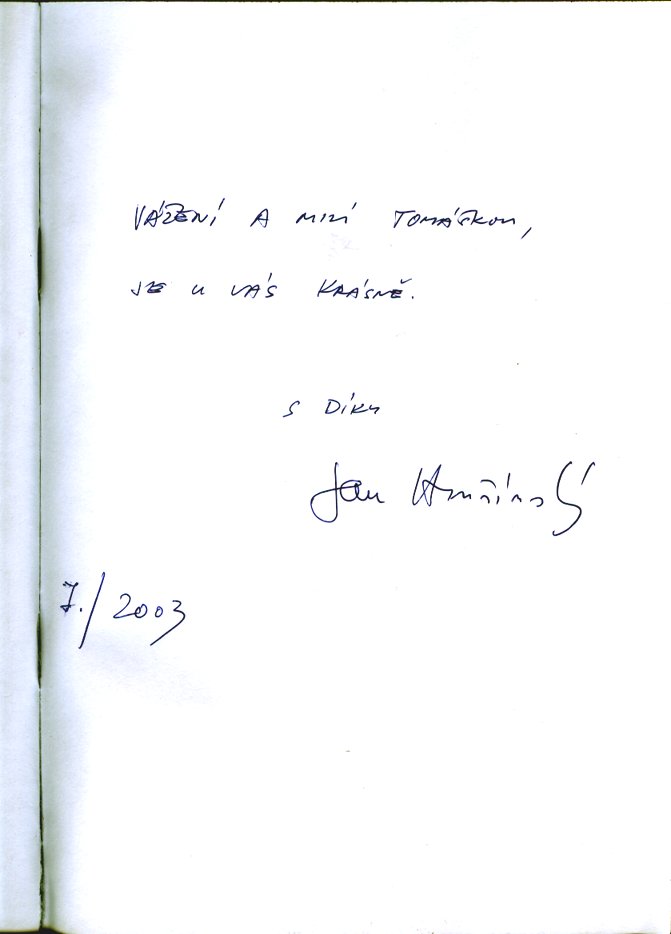 VÁŽENÍ A MILÍ TOMÁŠKOVI,
JE U VÁS KRÁSNĚ.
S DÍKY
Jan
7./2003